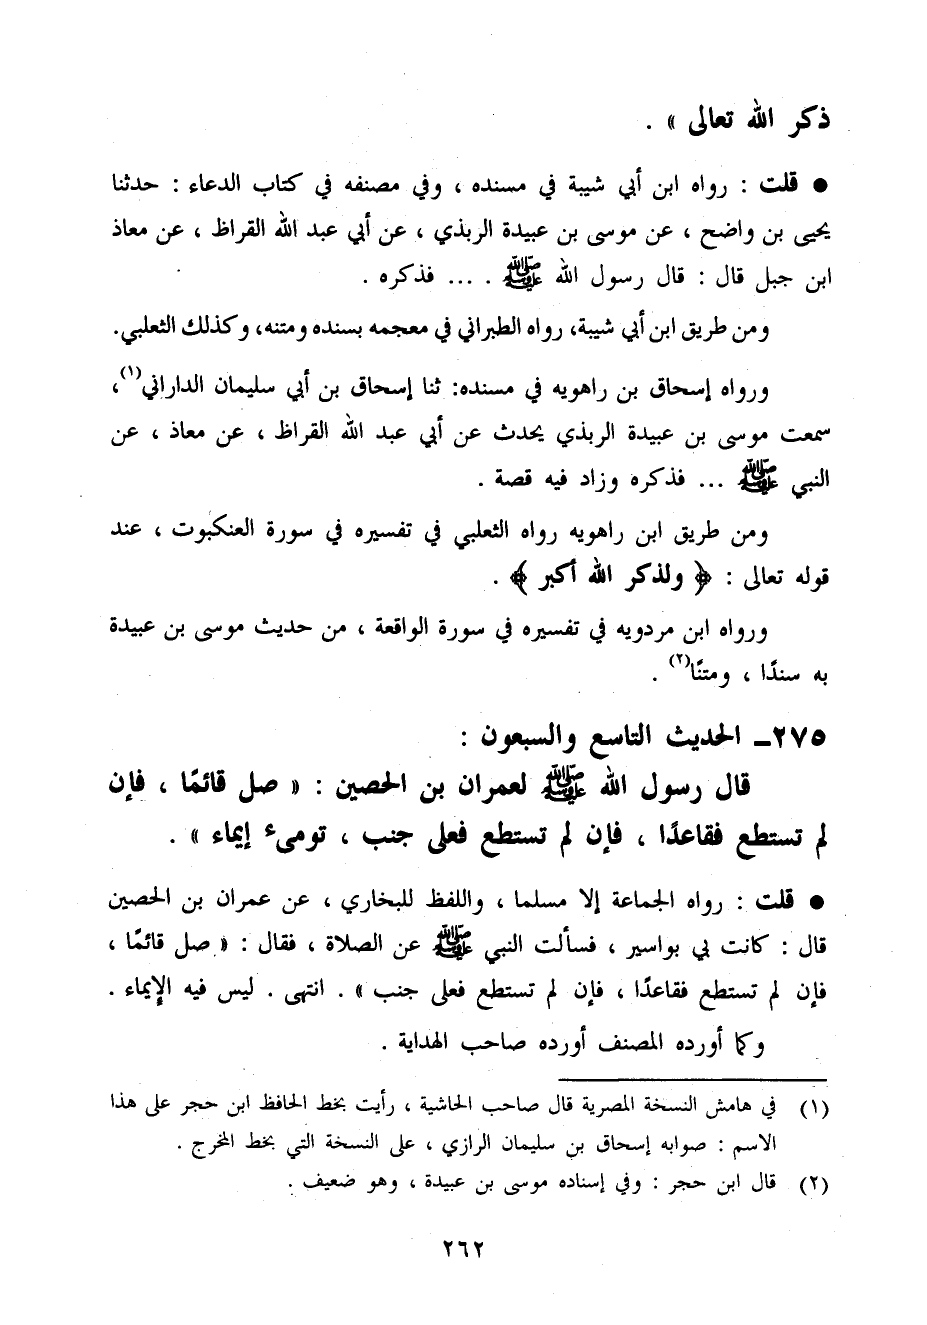 ذكر الله تعالى » .
● قلت : رواه ابن أبي شيبة في مسنده ، وفي مصنفه في كتاب الدعاء : حدثنا
يحيى بن واضح ، عن موسى بن عبيدة الربذي ، عن أبي عبد الله القراظ ، عن معاذ
ابن جبل قال : قال رسول الله ﷺ . ... فذكره .
ومن طريق ابن أبي شيبة، رواه الطبراني في معجمه بسنده ومتنه، وكذلك الثعلبي.
ورواه إسحاق بن راهويه في مسنده: ثنا إسحاق بن أبي سليمان الداراني(١)،
سمعت موسى بن عبيدة الربذي يحدث عن أبي عبد الله القراظ ، عن معاذ ، عن
النبي ﷺ ... فذكره وزاد فيه قصة .
ومن طريق ابن راهويه رواه الثعلبي في تفسيره في سورة العنكبوت ، عند
قوله تعالى : ﴿ ولذكر الله أكبر ﴾ .
ورواه ابن مردويه في تفسيره في سورة الواقعة ، من حديث موسى بن عبيدة
به سندًا ، ومتنًا(٢) .
٢٧٥ـ الحديث التاسع والسبعون :
قال رسول الله ﷺ لعمران بن الحصين : « صل قائمًا ، فإن
لم تستطع فقاعدًا ، فإن لم تستطع فعلى جنب ، تومىء إيماء » .
● قلت : رواه الجماعة إلا مسلما ، واللفظ للبخاري ، عن عمران بن الحصين
قال : كانت بي بواسير ، فسألت النبي ﷺ عن الصلاة ، فقال : « صل قائمًا ،
فإن لم تستطع فقاعدًا ، فإن لم تستطع فعلى جنب » . انتهى . ليس فيه الإيماء .
وكما أورده المصنف أورده صاحب الهداية .
(١) في هامش النسخة المصرية قال صاحب الحاشية ، رأيت بخط الحافظ ابن حجر على هذا
الاسم : صوابه إسحاق بن سليمان الرازي ، على النسخة التي بخط المخرج .
(٢) قال ابن حجر : وفي إسناده موسى بن عبيدة ، وهو ضعيف .
٢٦٢